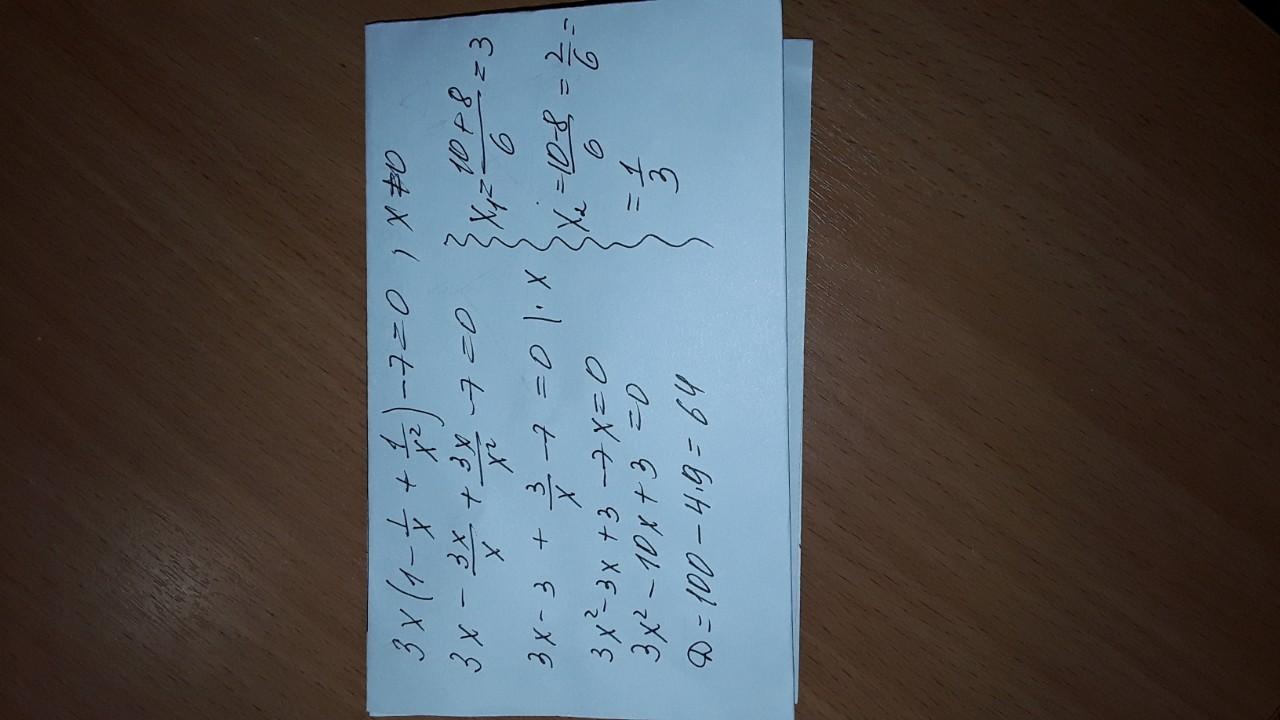 3x(1 - 1/x + 1/x²) - 7 = 0 , x ≠ 0
3x - 3x/x + 3x/x² - 7 = 0
3x - 3 + 3/x - 7 = 0 | · x
3x² - 3x + 3 - 7x = 0
3x² - 10x + 3 = 0
D = 100 - 4.9 = 64
x₁ = 10+8/6 = 3
x₂ = 10-8/6 = 2/6 =
= 1/3